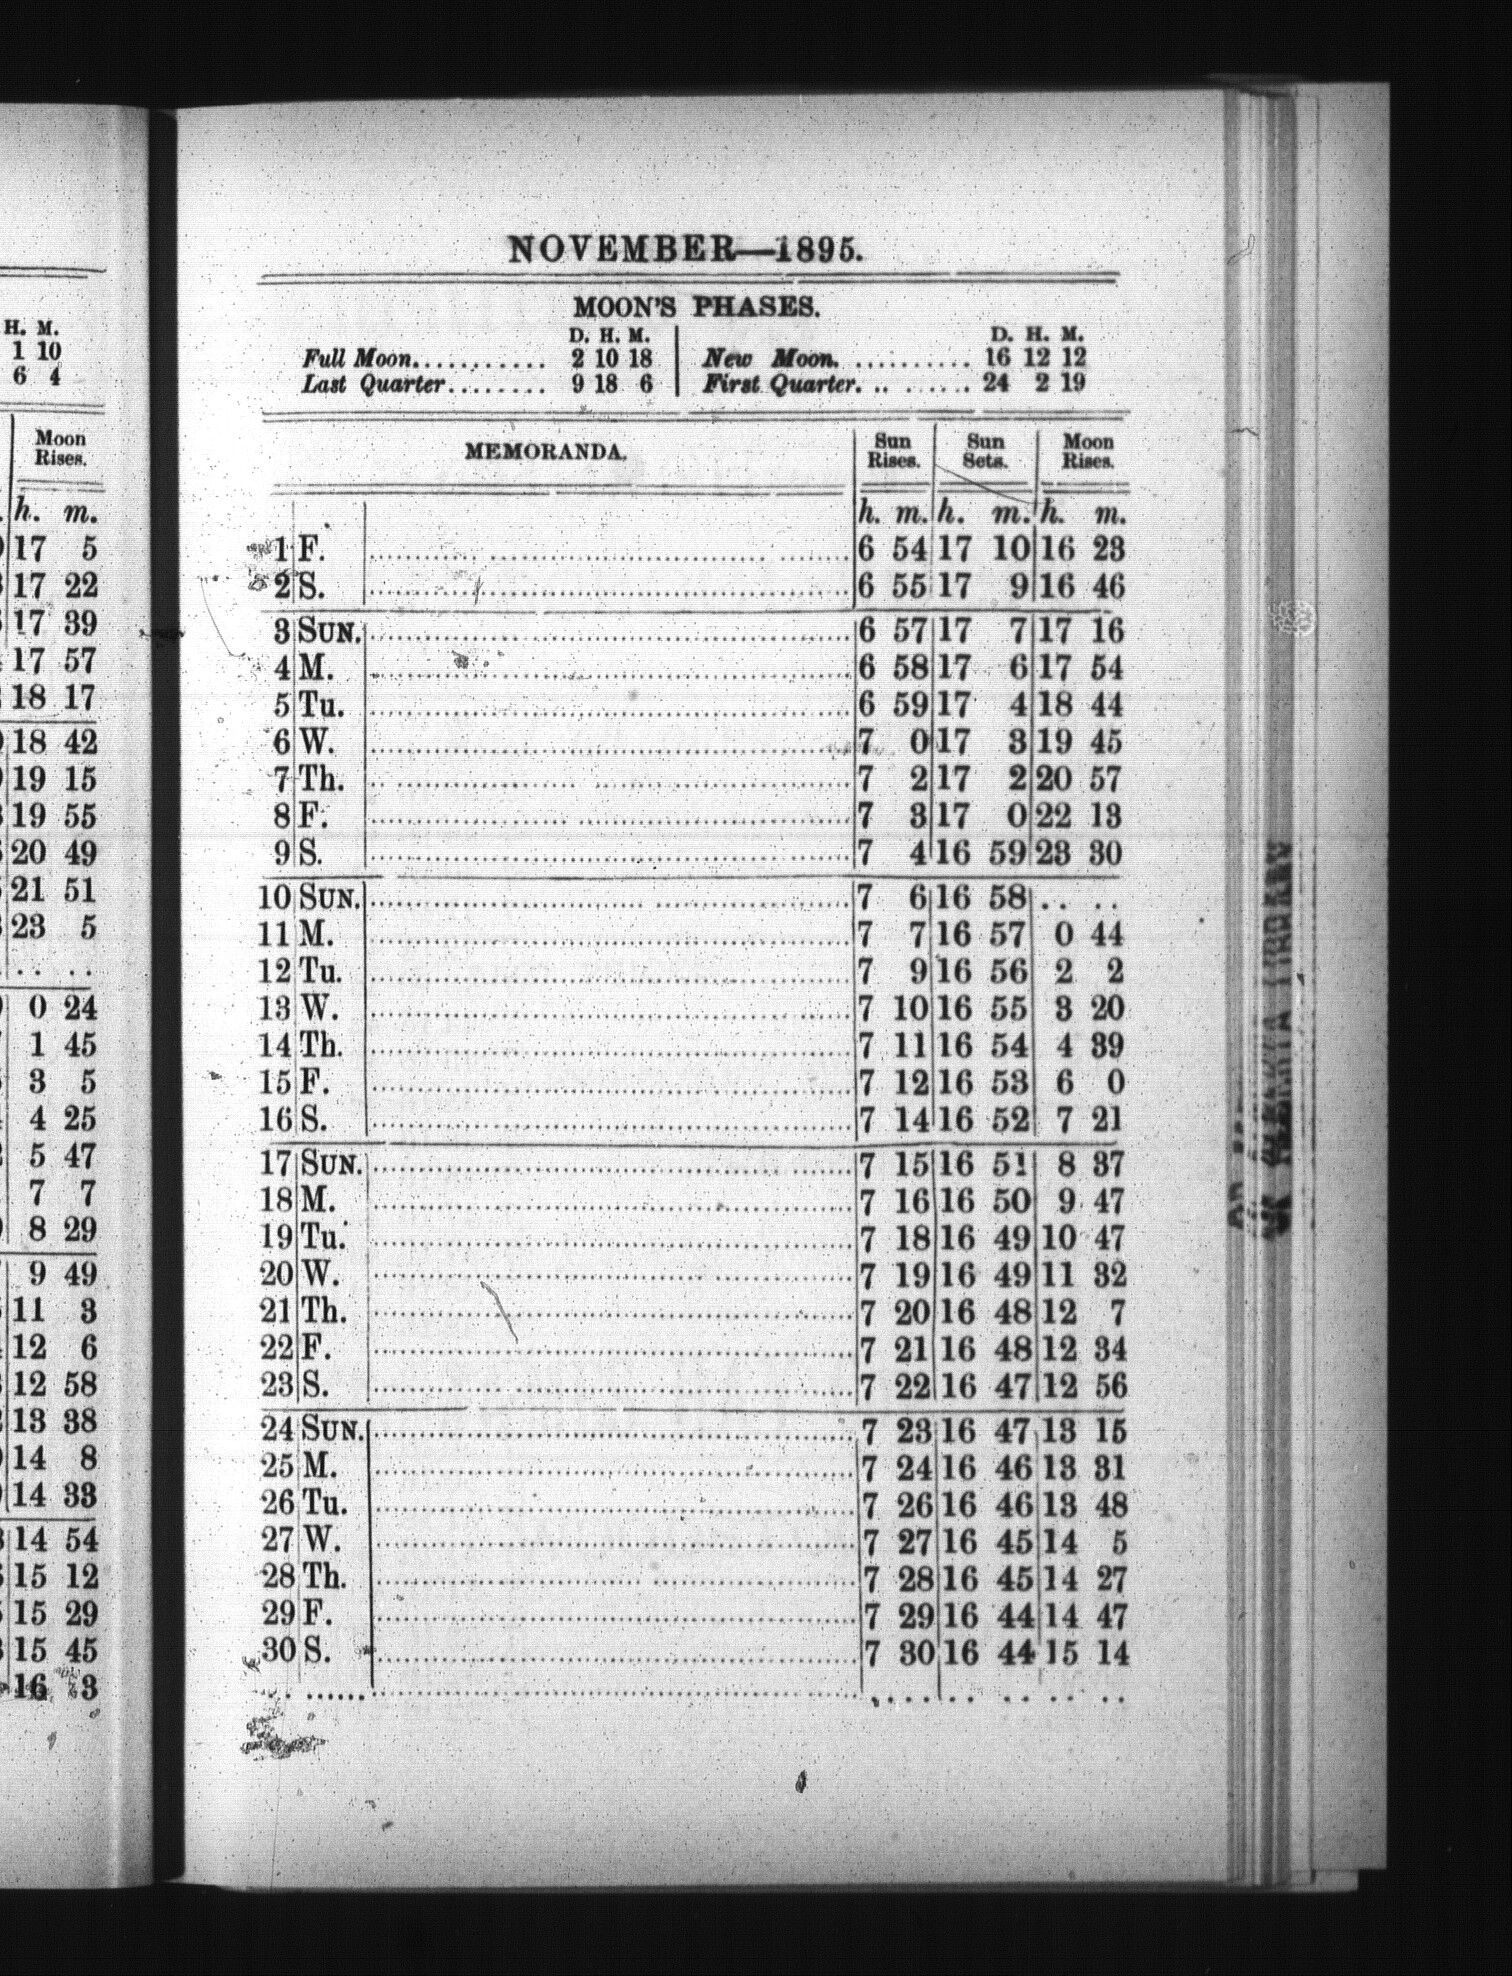 H. M.
1 10
6 4
Moon
Rises.
h. m.
17 5
17 22
17 39
17 57
18 17
18 42
19 15
19 55
20 49
21 51
23 5
.. ..
0 24
1 45
3 5
4 25
5 47
7 7
8 29
9 49
11 3
12 6
12 58
13 38
14 8
14 33
14 54
15 12
15 29
15 45
16 3
NOVEMBER—1895.
MOON'S PHASES.
D. H. M. D. H. M.
Full Moon........... 2 10 18 New Moon. .......... 16 12 12
Last Quarter........ 9 18 6 First Quarter. .. ...... 24 2 19
MEMORANDA. Sun Rises. Sun Sets. Moon Rises.
h. m. h. m. h. m.
1 F. 6 54 17 10 16 23
2 S. 6 55 17 9 16 46
3 SUN. 6 57 17 7 17 16
4 M. 6 58 17 6 17 54
5 Tu. 6 59 17 4 18 44
6 W. 7 0 17 3 19 45
7 Th. 7 2 17 2 20 57
8 F. 7 3 17 0 22 13
9 S. 7 4 16 59 23 30
10 SUN. 7 6 16 58 .. ..
11 M. 7 7 16 57 0 44
12 Tu. 7 9 16 56 2 2
13 W. 7 10 16 55 3 20
14 Th. 7 11 16 54 4 39
15 F. 7 12 16 53 6 0
16 S. 7 14 16 52 7 21
17 SUN. 7 15 16 51 8 37
18 M. 7 16 16 50 9 47
19 Tu. 7 18 16 49 10 47
20 W. 7 19 16 49 11 32
21 Th. 7 20 16 48 12 7
22 F. 7 21 16 48 12 34
23 S. 7 22 16 47 12 56
24 SUN. 7 23 16 47 13 15
25 M. 7 24 16 46 13 31
26 Tu. 7 26 16 46 13 48
27 W. 7 27 16 45 14 5
28 Th. 7 28 16 45 14 27
29 F. 7 29 16 44 14 47
30 S. 7 30 16 44 15 14